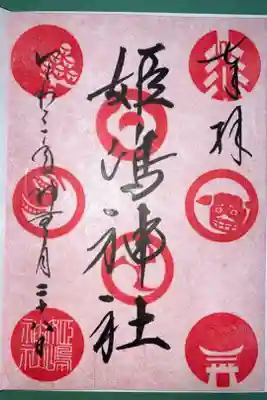 奉拝
姫嶋神社
令和 年 月二十八日
姫嶋神社